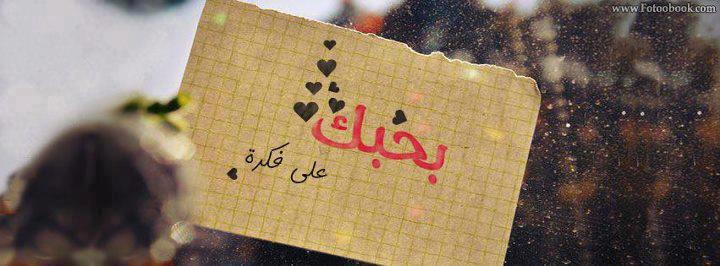 www.Fotoobook.com
بحبك
على فكرة